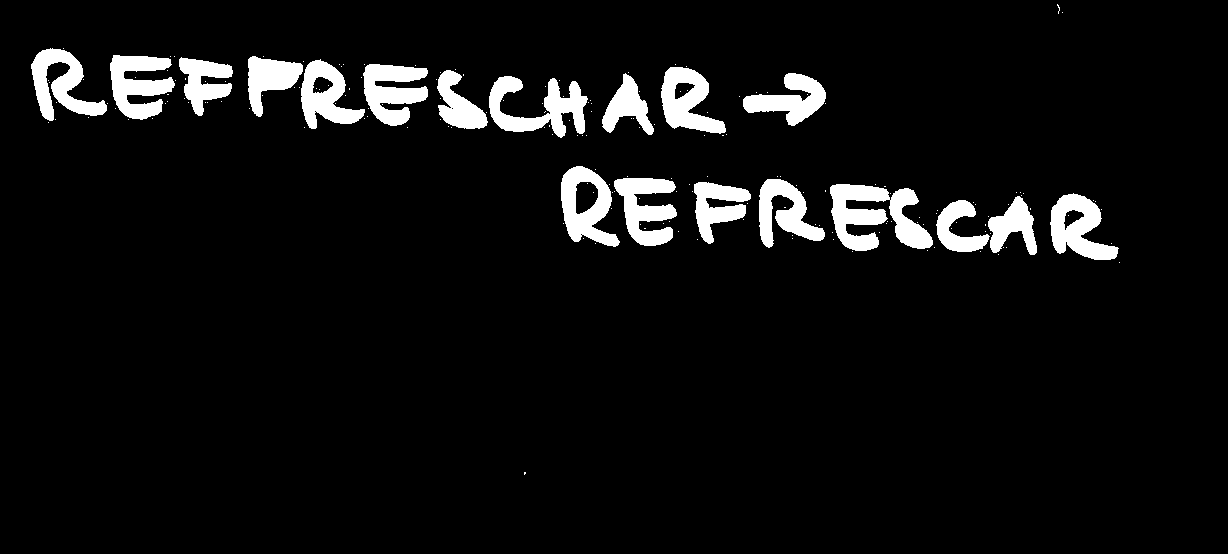 REFFRESCHAR →
REFRESCAR